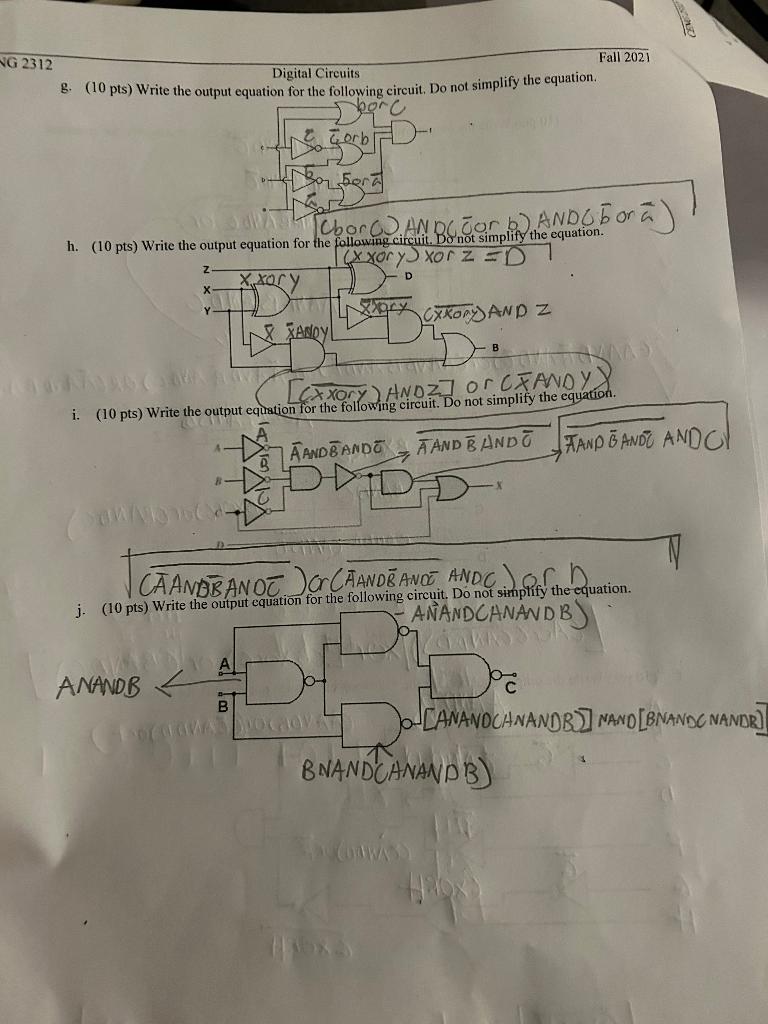 NG 2312
Digital Circuits
Fall 2021
g. (10 pts) Write the output equation for the following circuit. Do not simplify the equation.
b or C
c̅
c̅ or b
b̅
b̅ or a̅
a̅
(b or C) AND (c̅ or b) AND (b̅ or a̅)
h. (10 pts) Write the output equation for the following circuit. Do not simplify the equation.
(X xor y) xor z = D
Z
X xor y
D
X
Y
X̅ x̅o̅r̅ y̅
(X̅ x̅o̅r̅ y̅) AND Z
X̅
X̅ANDY
B
[(X̅ x̅o̅r̅ y̅) AND Z] or (X̅ANDY)
i. (10 pts) Write the output equation for the following circuit. Do not simplify the equation.
A̅
A
A̅ANDB̅ANDC̅
A̅ AND B̅ AND C̅
A̅AND B̅ ANDC̅ ANDC
B̅
B
X
C̅
D
(A̅ANDB̅ANDC̅) or (A̅ANDB̅ANDC̅ ANDC) or D
j. (10 pts) Write the output equation for the following circuit. Do not simplify the equation.
ANAND(ANANDB)
A
ANANDB
C
B
[ANAND(ANANDB)] NAND [BNAND( NANDB)]
BNAND(ANANDB)